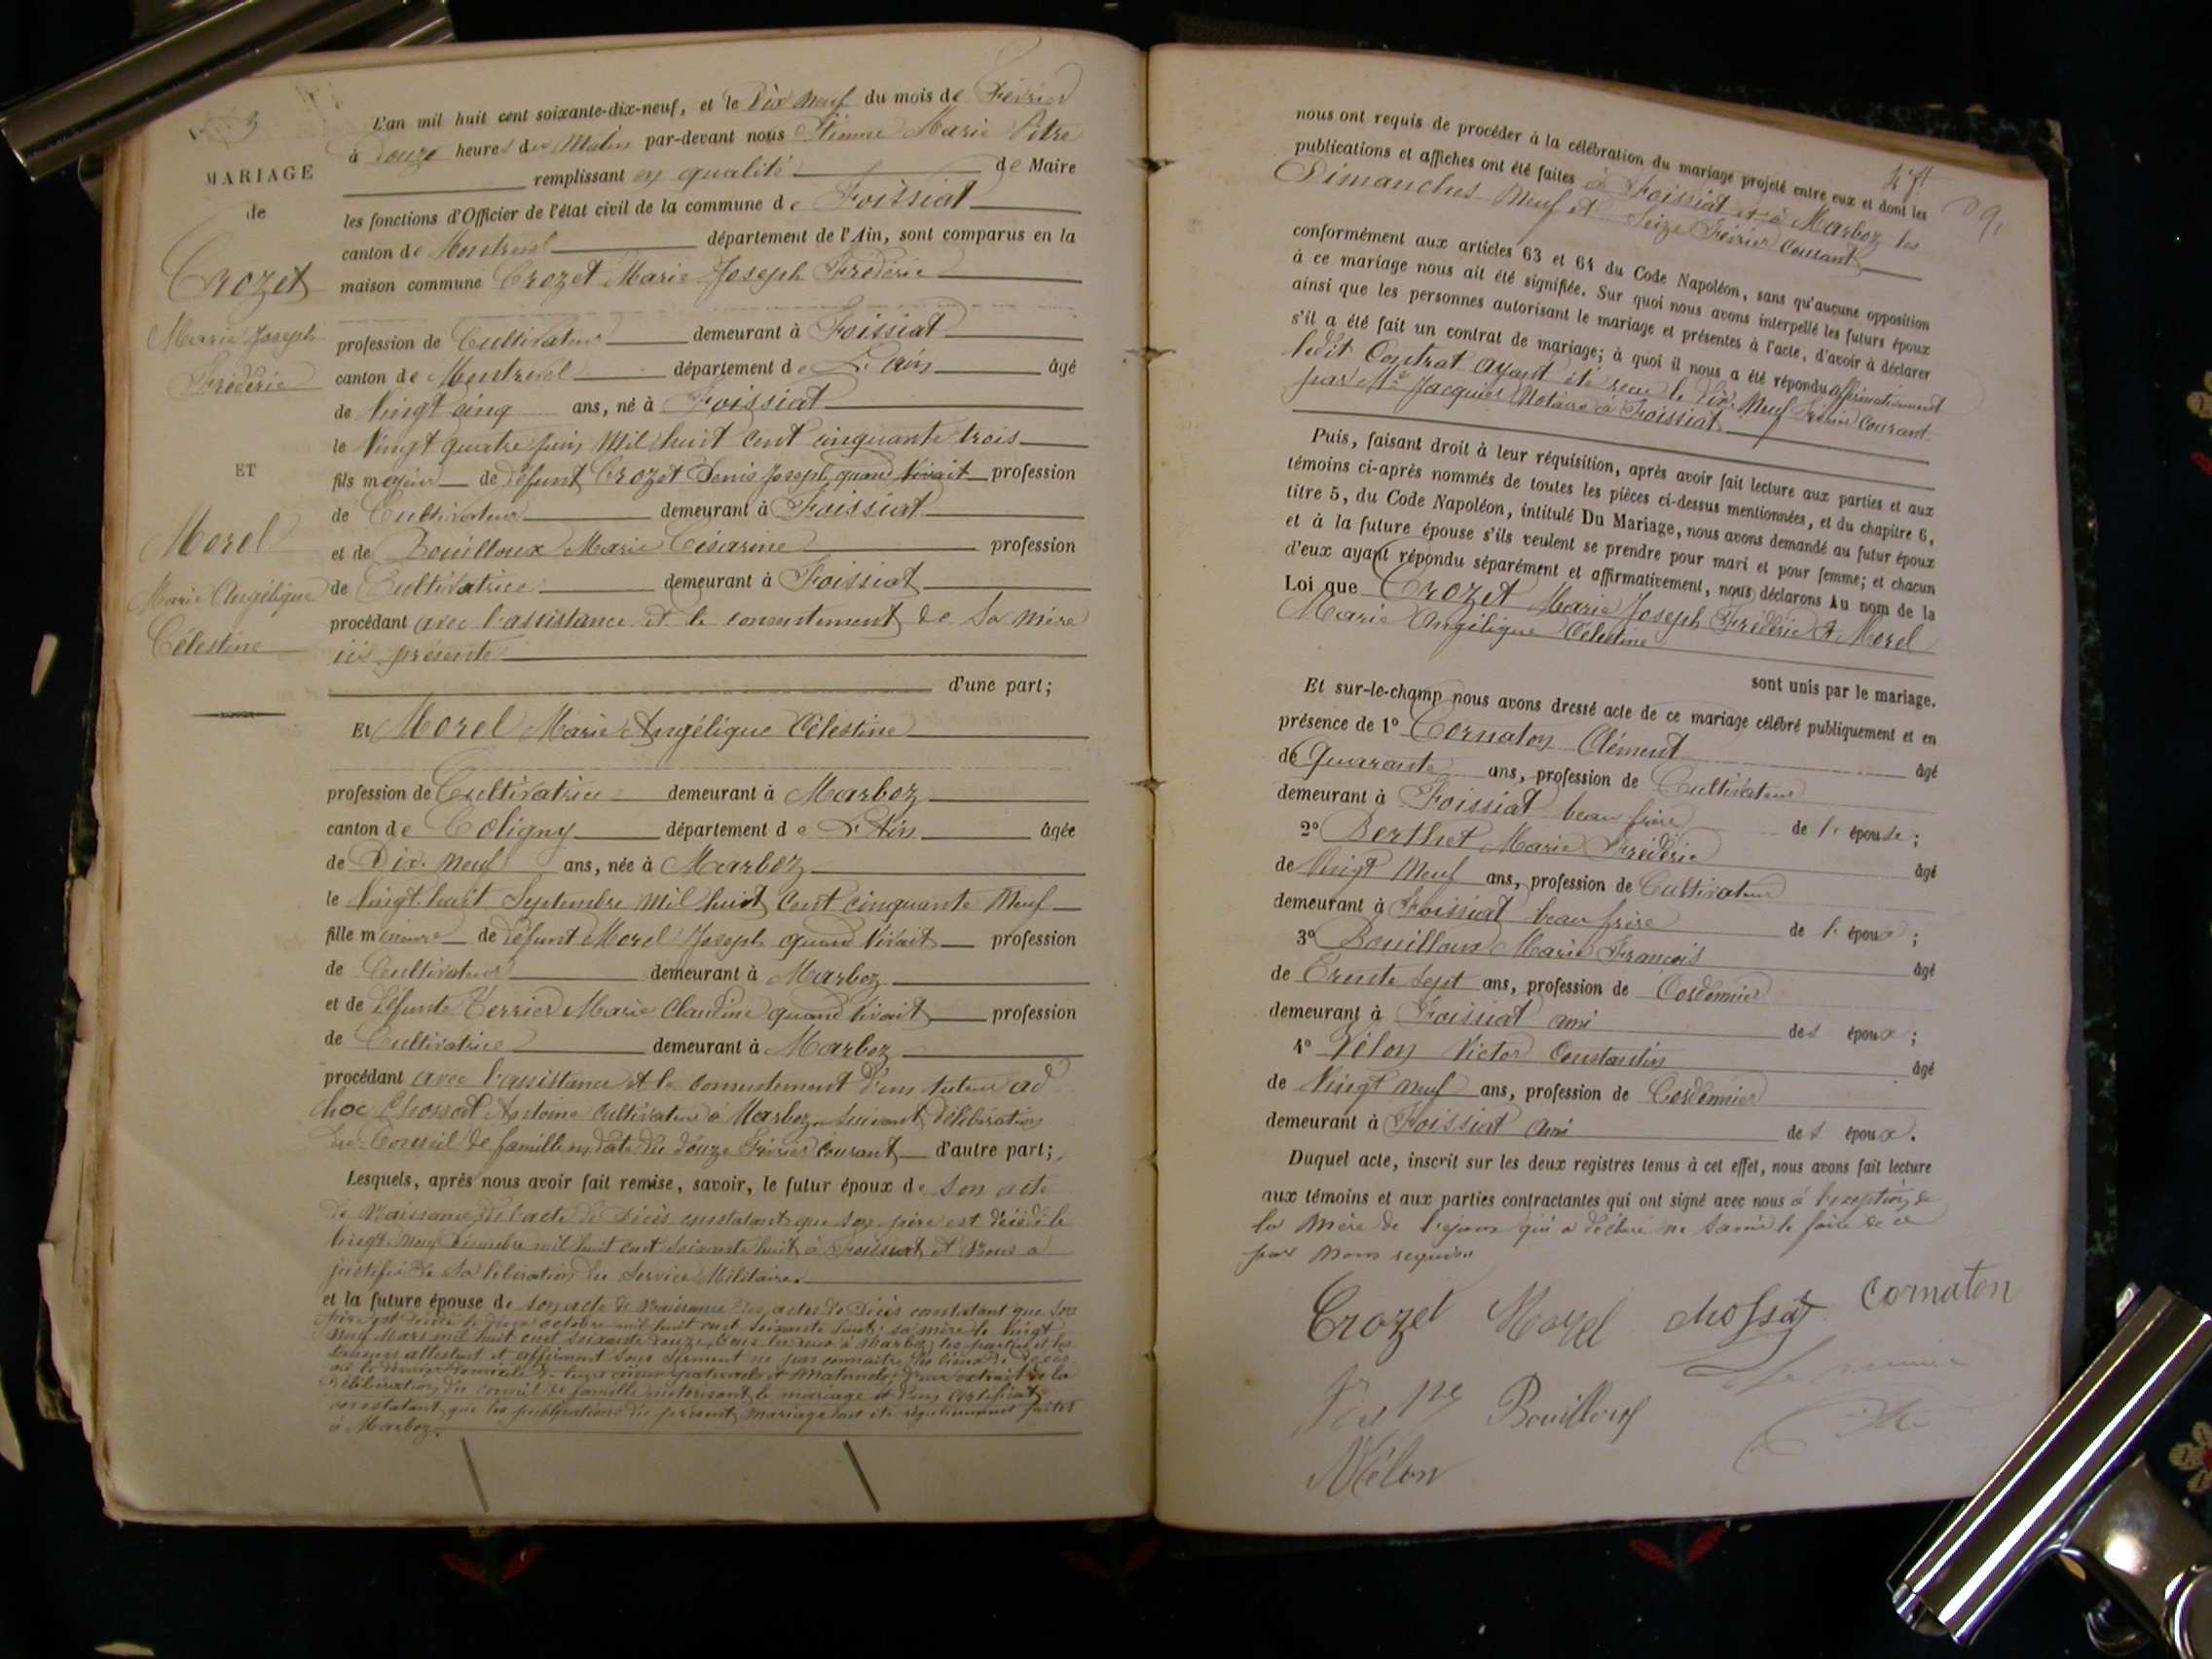 3
MARIAGE
de
Crozet
Marie Joseph
Frédéric
ET
Morel
Marie Angélique
Célestine
L'an mil huit cent soixante-dix-neuf, et le Dix Neuf du mois de Février
à Douze heures du Matin par-devant nous Etienne Marie Pitre
remplissant en qualité de Maire
les fonctions d'Officier de l'état civil de la commune de Foissiat
canton de Montrevel département de l'Ain, sont comparus en la
maison commune Crozet Marie Joseph Frédéric
profession de Cultivateur demeurant à Foissiat
canton de Montrevel département de L'Ain âgé
de Vingt cinq ans, né à Foissiat
le Vingt quatre juin Mil huit Cent cinquante trois
fils majeur de Défunt Crozet Denis Joseph quand Vivait profession
de Cultivateur demeurant à Foissiat
et de Bouilloux Marie Césarine profession
de Cultivatrice demeurant à Foissiat
procédant avec l'assistance et le consentement de Sa Mère
ici présente
d'une part;
Et Morel Marie Angélique Célestine
profession de Cultivatrice demeurant à Marboz
canton de Coligny département de L'Ain âgée
de Dix-Neuf ans, née à Marboz
le Vingt-huit Septembre Mil huit Cent cinquante Neuf
fille mineure de Défunt Morel Joseph quand Vivait profession
de Cultivateur demeurant à Marboz
et de Défunte Terrier Marie Claudine quand Vivait profession
de Cultivatrice demeurant à Marboz
procédant avec l'assistance et le Consentement d'un tuteur ad
hoc Chossat Antoine Cultivateur à Marboz Suivant Délibération
du Conseil de famille en date du douze Février Courant d'autre part;
Lesquels, après nous avoir fait remise, savoir, le futur époux de Son acte
de Naissance, de l'acte de Décès constatant que Son père est décédé le
Vingt Neuf Décembre mil huit cent Soixante huit à Foissiat et Nous a
justifié de Sa libération du Service Militaire.
et la future épouse de son acte de Naissance des actes de Décès constatant que Son
père est décédé le octobre mil huit cent Soixante huit, sa mère le Vingt
Neuf Mars mil huit cent Soixante Douze, tous les deux à Marboz, les parties et les
témoins attestent et affirment Sous Serment ne pas connaître les lieux de Décès
ni le dernier domicile de leurs aïeux paternels et Maternels, d'un extrait de la
Délibération du conseil de famille autorisant le mariage et d'un certificat
constatant que les publications du présent mariage ont été régulièrement faites
à Marboz.
nous ont requis de procéder à la célébration du mariage projeté entre eux et dont les
publications et affiches ont été faites à Foissiat et à Marboz les
Dimanches Neuf et Seize Février Courant
conformément aux articles 63 et 64 du Code Napoléon, sans qu'aucune opposition
à ce mariage nous ait été signifiée. Sur quoi nous avons interpellé les futurs époux
ainsi que les personnes autorisant le mariage et présentes à l'acte, d'avoir à déclarer
s'il a été fait un contrat de mariage; à quoi il nous a été répondu affirmativement
ledit Contrat ayant été reçu le Dix Neuf Février Courant
par Me Jacquier Notaire à Foissiat
Puis, faisant droit à leur réquisition, après avoir fait lecture aux parties et aux
témoins ci-après nommés de toutes les pièces ci-dessus mentionnées, et du chapitre 6,
titre 5, du Code Napoléon, intitulé Du Mariage, nous avons demandé au futur époux
et à la future épouse s'ils veulent se prendre pour mari et pour femme; et chacun
d'eux ayant répondu séparément et affirmativement, nous déclarons Au nom de la
Loi que Crozet Marie Joseph Frédéric & Morel
Marie Angélique Célestine
sont unis par le mariage.
Et sur-le-champ nous avons dressé acte de ce mariage célébré publiquement et en
présence de 1° Cornaton Clément âgé
de Quarante ans, profession de Cultivateur
demeurant à Foissiat beau frère de l'épouse;
2° Berthet Marie Frédéric âgé
de Vingt Neuf ans, profession de Cultivateur
demeurant à Foissiat beau frère de l'époux;
3° Bouilloux Marie François âgé
de Trente Sept ans, profession de Cordonnier
demeurant à Foissiat ami des époux;
4° Vélon Victor Constantin âgé
de Vingt Neuf ans, profession de Cordonnier
demeurant à Foissiat ami des époux.
Duquel acte, inscrit sur les deux registres tenus à cet effet, nous avons fait lecture
aux témoins et aux parties contractantes qui ont signé avec nous à l'exception de
la Mère de l'époux qui a déclaré ne Savoir le faire de ce
par Nous requise
Crozet Morel chossat Cornaton
Bouilloux
le maire
Pitre
Vélon